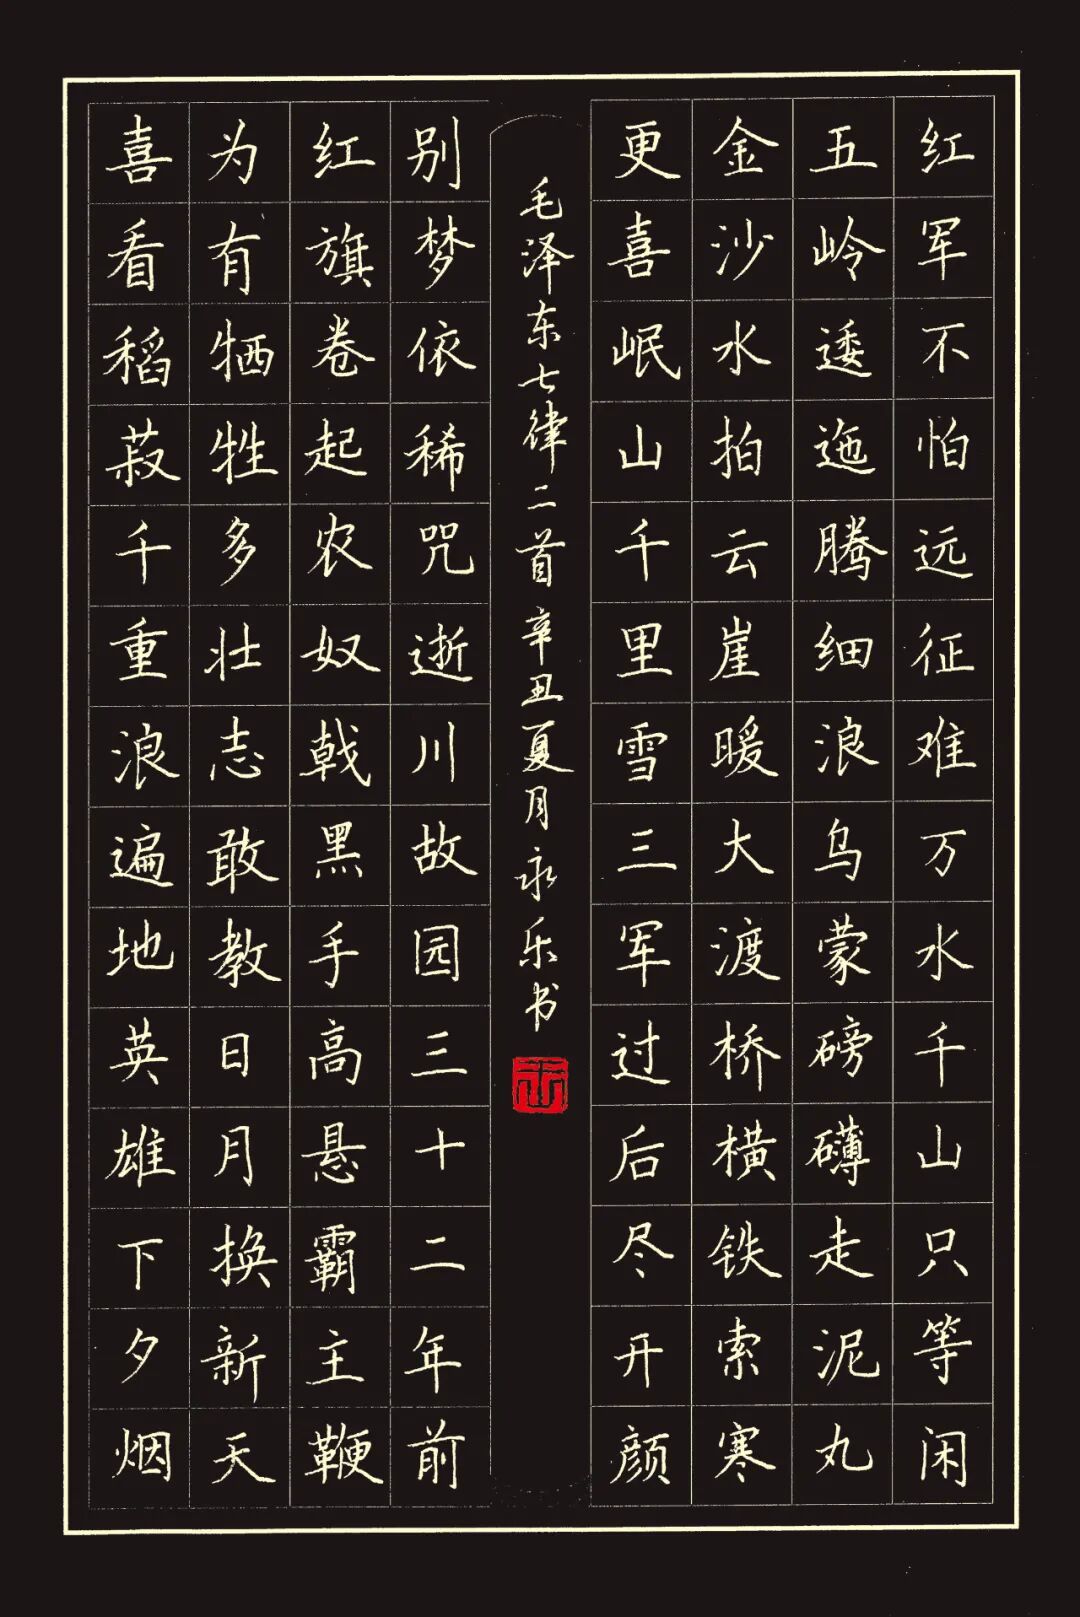 红军不怕远征难万水千山只等闲
五岭逶迤腾细浪乌蒙磅礴走泥丸
金沙水拍云崖暖大渡桥横铁索寒
更喜岷山千里雪三军过后尽开颜
毛泽东七律二首辛丑夏月永乐书
别梦依稀咒逝川故园三十二年前
红旗卷起农奴戟黑手高悬霸主鞭
为有牺牲多壮志敢教日月换新天
喜看稻菽千重浪遍地英雄下夕烟